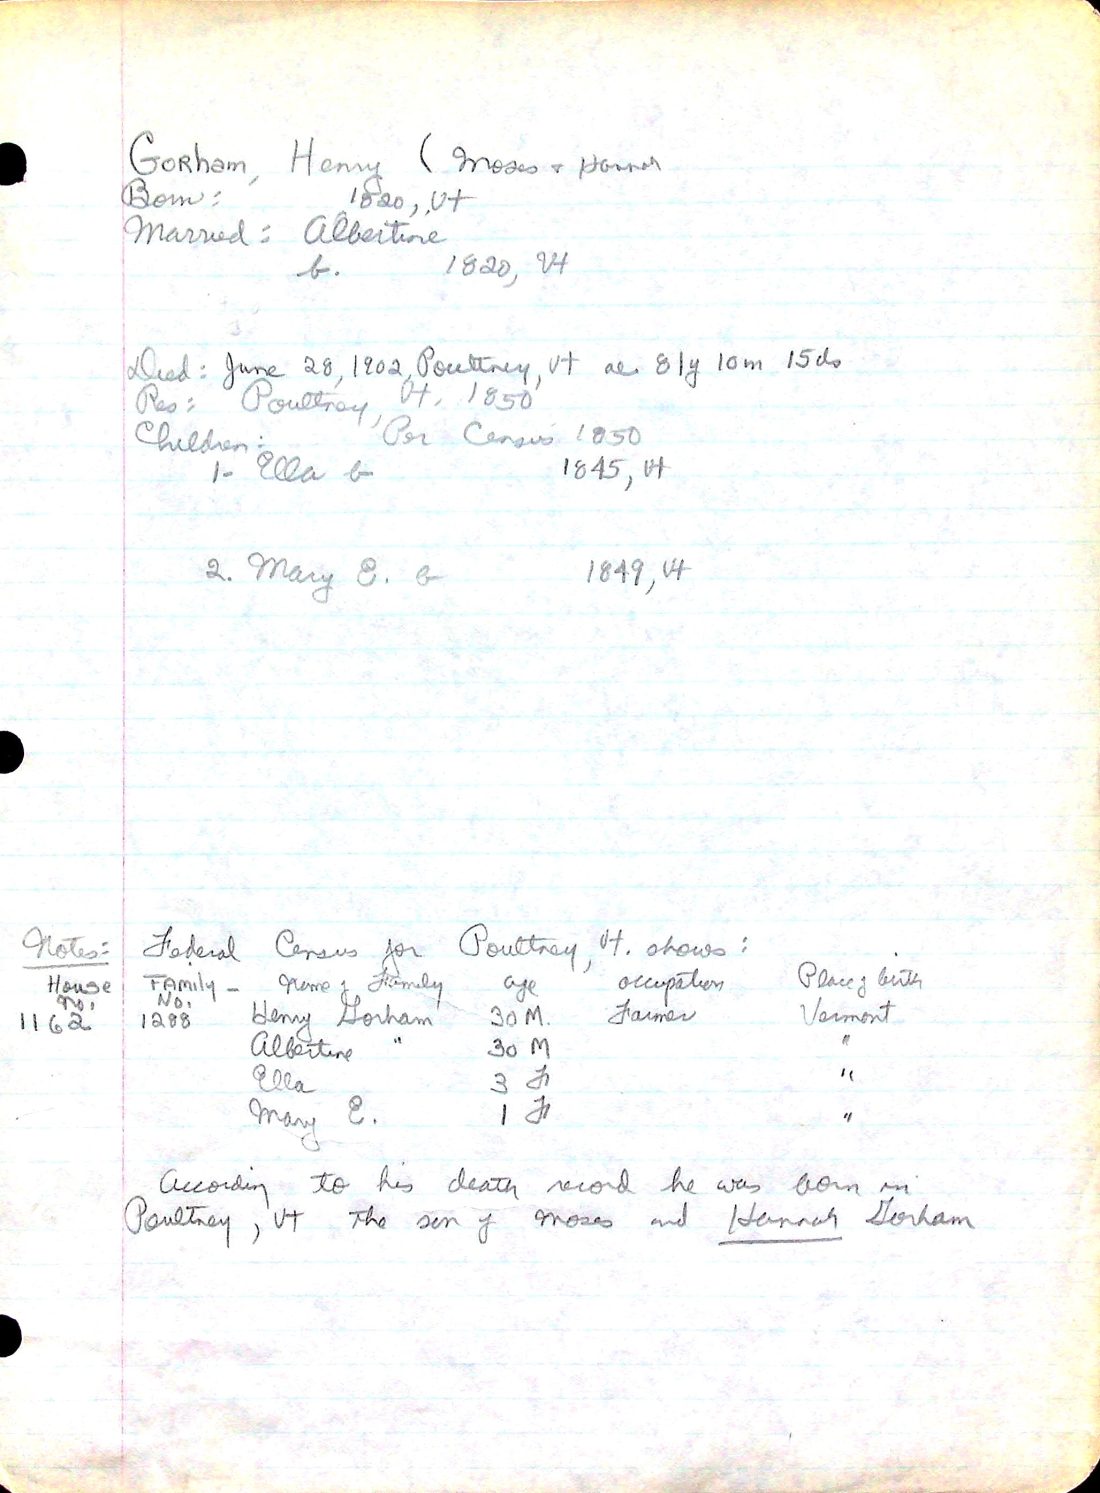 Gorham, Henry ( Moses + Hannah
Born: 1820, Vt
Married: Albertine
b. 1820, Vt
Died: June 28, 1902, Poultney, Vt ae. 81y 10m 15ds
Res: Poultney, Vt. 1850
Children: Per Census 1850
1- Ella b 1845, Vt
2. Mary E. b 1849, Vt
Notes: Federal Census for Poultney, Vt. shows:
House No. FAMily No. - Name of Family age occupation Place of birth
1162 1288 Henry Gorham 30 M. Farmer Vermont
Albertine " 30 M "
Ella 3 F "
Mary E. 1 F "
According to his death record he was born in
Poultney, Vt The son of Moses and Hannah Gorham